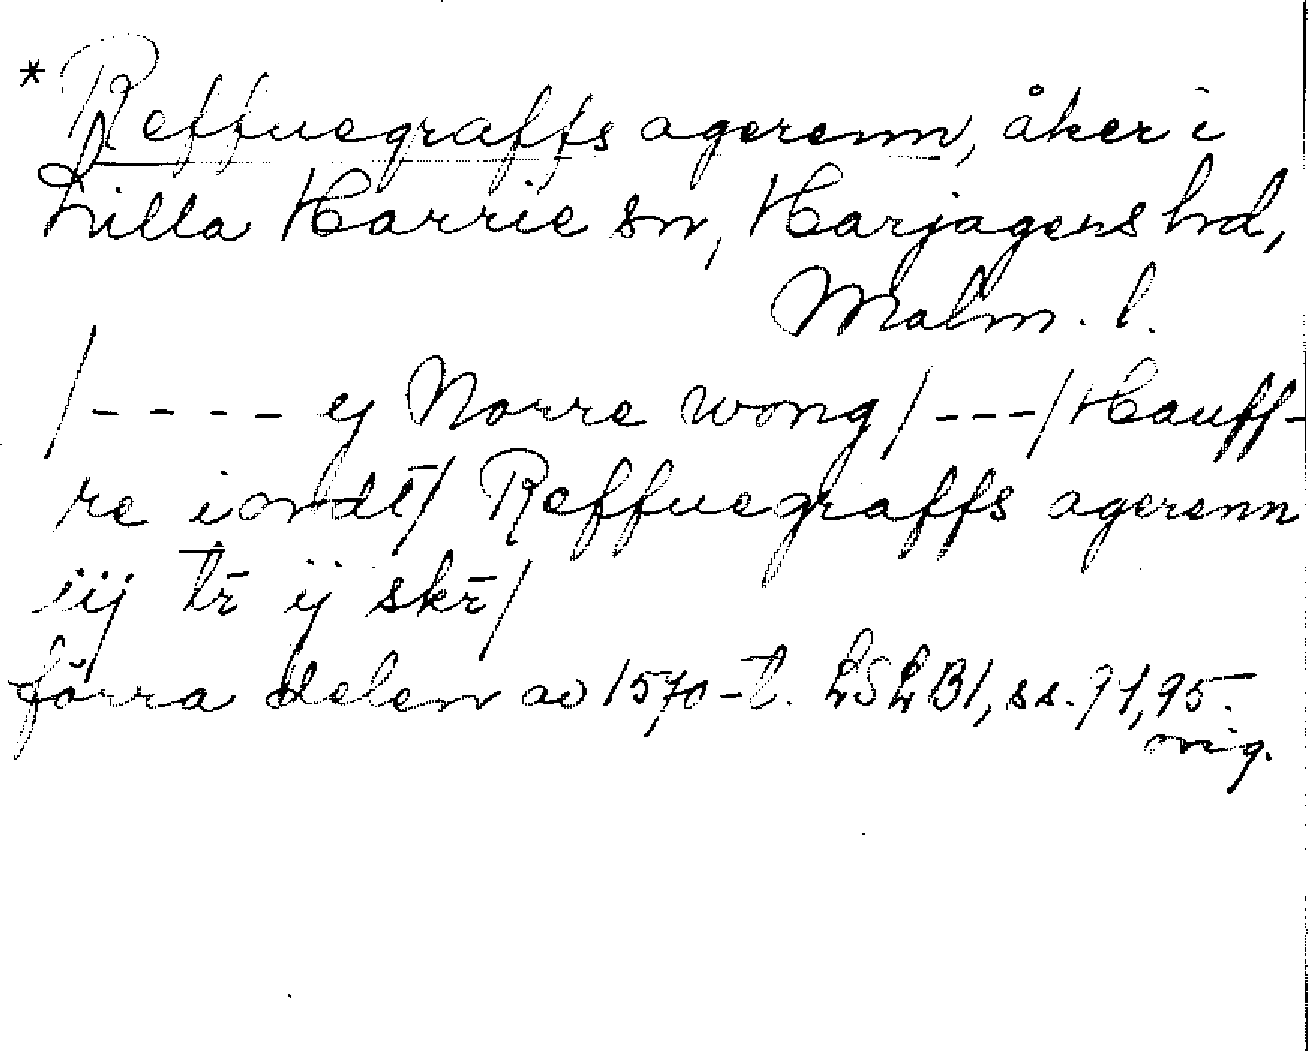 * Reffuegraffs agerenn, åker i
Lilla Harrie sn, Harjagers hd,
Malm. l.
/- - - - ej Norre wong/ - - -/Hauff-
re iordt/ Reffuegraffs agerenn
iij tr̄ ij skr̄/
förra delen av 1570-t. LSLB1, ss. 91, 95.
orig.